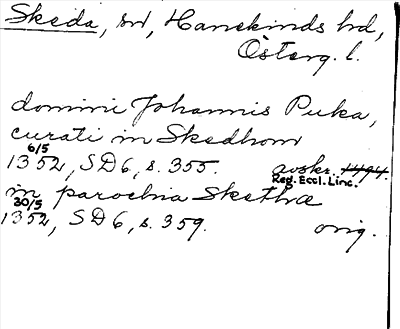 Skeda, sn, Hanekinds hd,
Österg. l.
dominu Johannis Puka,
curati in Skedhom
6/5
1352, SD 6, s. 355. avskr. 1494.
Reg. Eccl. Linc.
in parochia Skethæ
30/5
1352, SD 6, s. 359. orig.